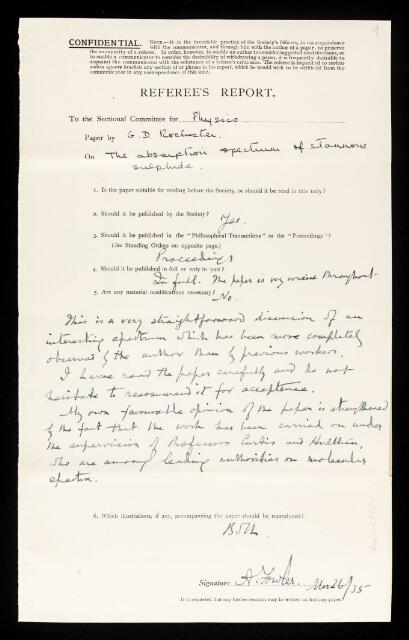 CONFIDENTIAL. NOTE.—It is the invariable practice of the Society's Officers, in correspondence
with the communicator, and through him with the author of a paper, to preserve
the anonymity of a referee. In order, however, to enable an author to consider suggested modifications, or
to enable a communicator to consider the desirability of withdrawing a paper, it is frequently desirable to
acquaint the communicator with the substance of a referee's criticisms. The referee is requested to
inclose within square brackets any section of or phrases in his report, which he would wish to be withheld from the
communicator in any correspondence of this kind.
REFEREE'S REPORT.
To the Sectional Committee for Physics
Paper by G. D. Rochester.
On The absorption spectrum of stannous
sulphide.
1. Is the paper suitable for reading before the Society, or should it be read in title only?
2. Should it be published by the Society?
Yes.
3. Should it be published in the "Philosophical Transactions" or the "Proceedings"?
(See Standing Orders on opposite page.)
Proceedings
4. Should it be published in full or only in part?
In full. The paper is very concise throughout.
5. Are any material modifications necessary?
No.
This is a very straightforward discussion of an
interesting spectrum which has been more completely
observed by the author than by previous workers.
I have read the paper carefully and do not
hesitate to recommend it for acceptance.
My own favourable opinion of the paper is strengthened
by the fact that the work has been carried on under
the supervision of Professors Curtis and Hulthén,
who are among leading authorities on molecular
spectra.
6. Which illustrations, if any, accompanying the paper should be reproduced?
Both
Signature A. Fowler. Mar 26/35
It is requested that any further remarks may be written on foolscap paper.